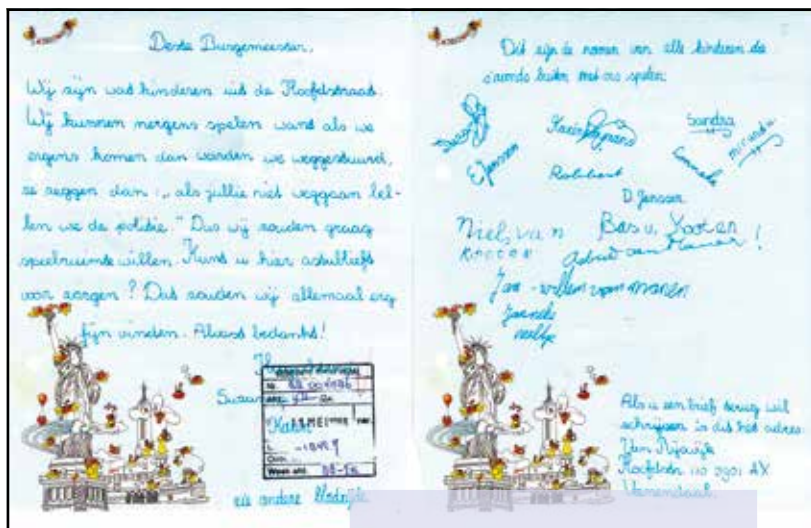 Beste Burgemeester,
Wij zijn wat kinderen uit de Hoofdstraat.
Wij kunnen nergens spelen want als we
ergens komen dan worden we weggestuurd,
ze zeggen dan: „als jullie niet weggaan bel-
len we de politie." Dus wij zouden graag
speelruimte willen. Kunt u hier astublieft
voor zorgen? Dat zouden wij allemaal erg
fijn vinden. Alvast bedankt!
Karin
en andere
Dit zijn de namen van alle kinderen die
s'avonds buiten met ons spelen:
Sandra
E Janssen
Miranda
D. Janssen
Niels van
Bas v.
Jan-willem van manen
Janneke
neeltje
Als u een brief terug wil
schrijven is dit het adres:
Van
110 3901 AX
Veenendaal.